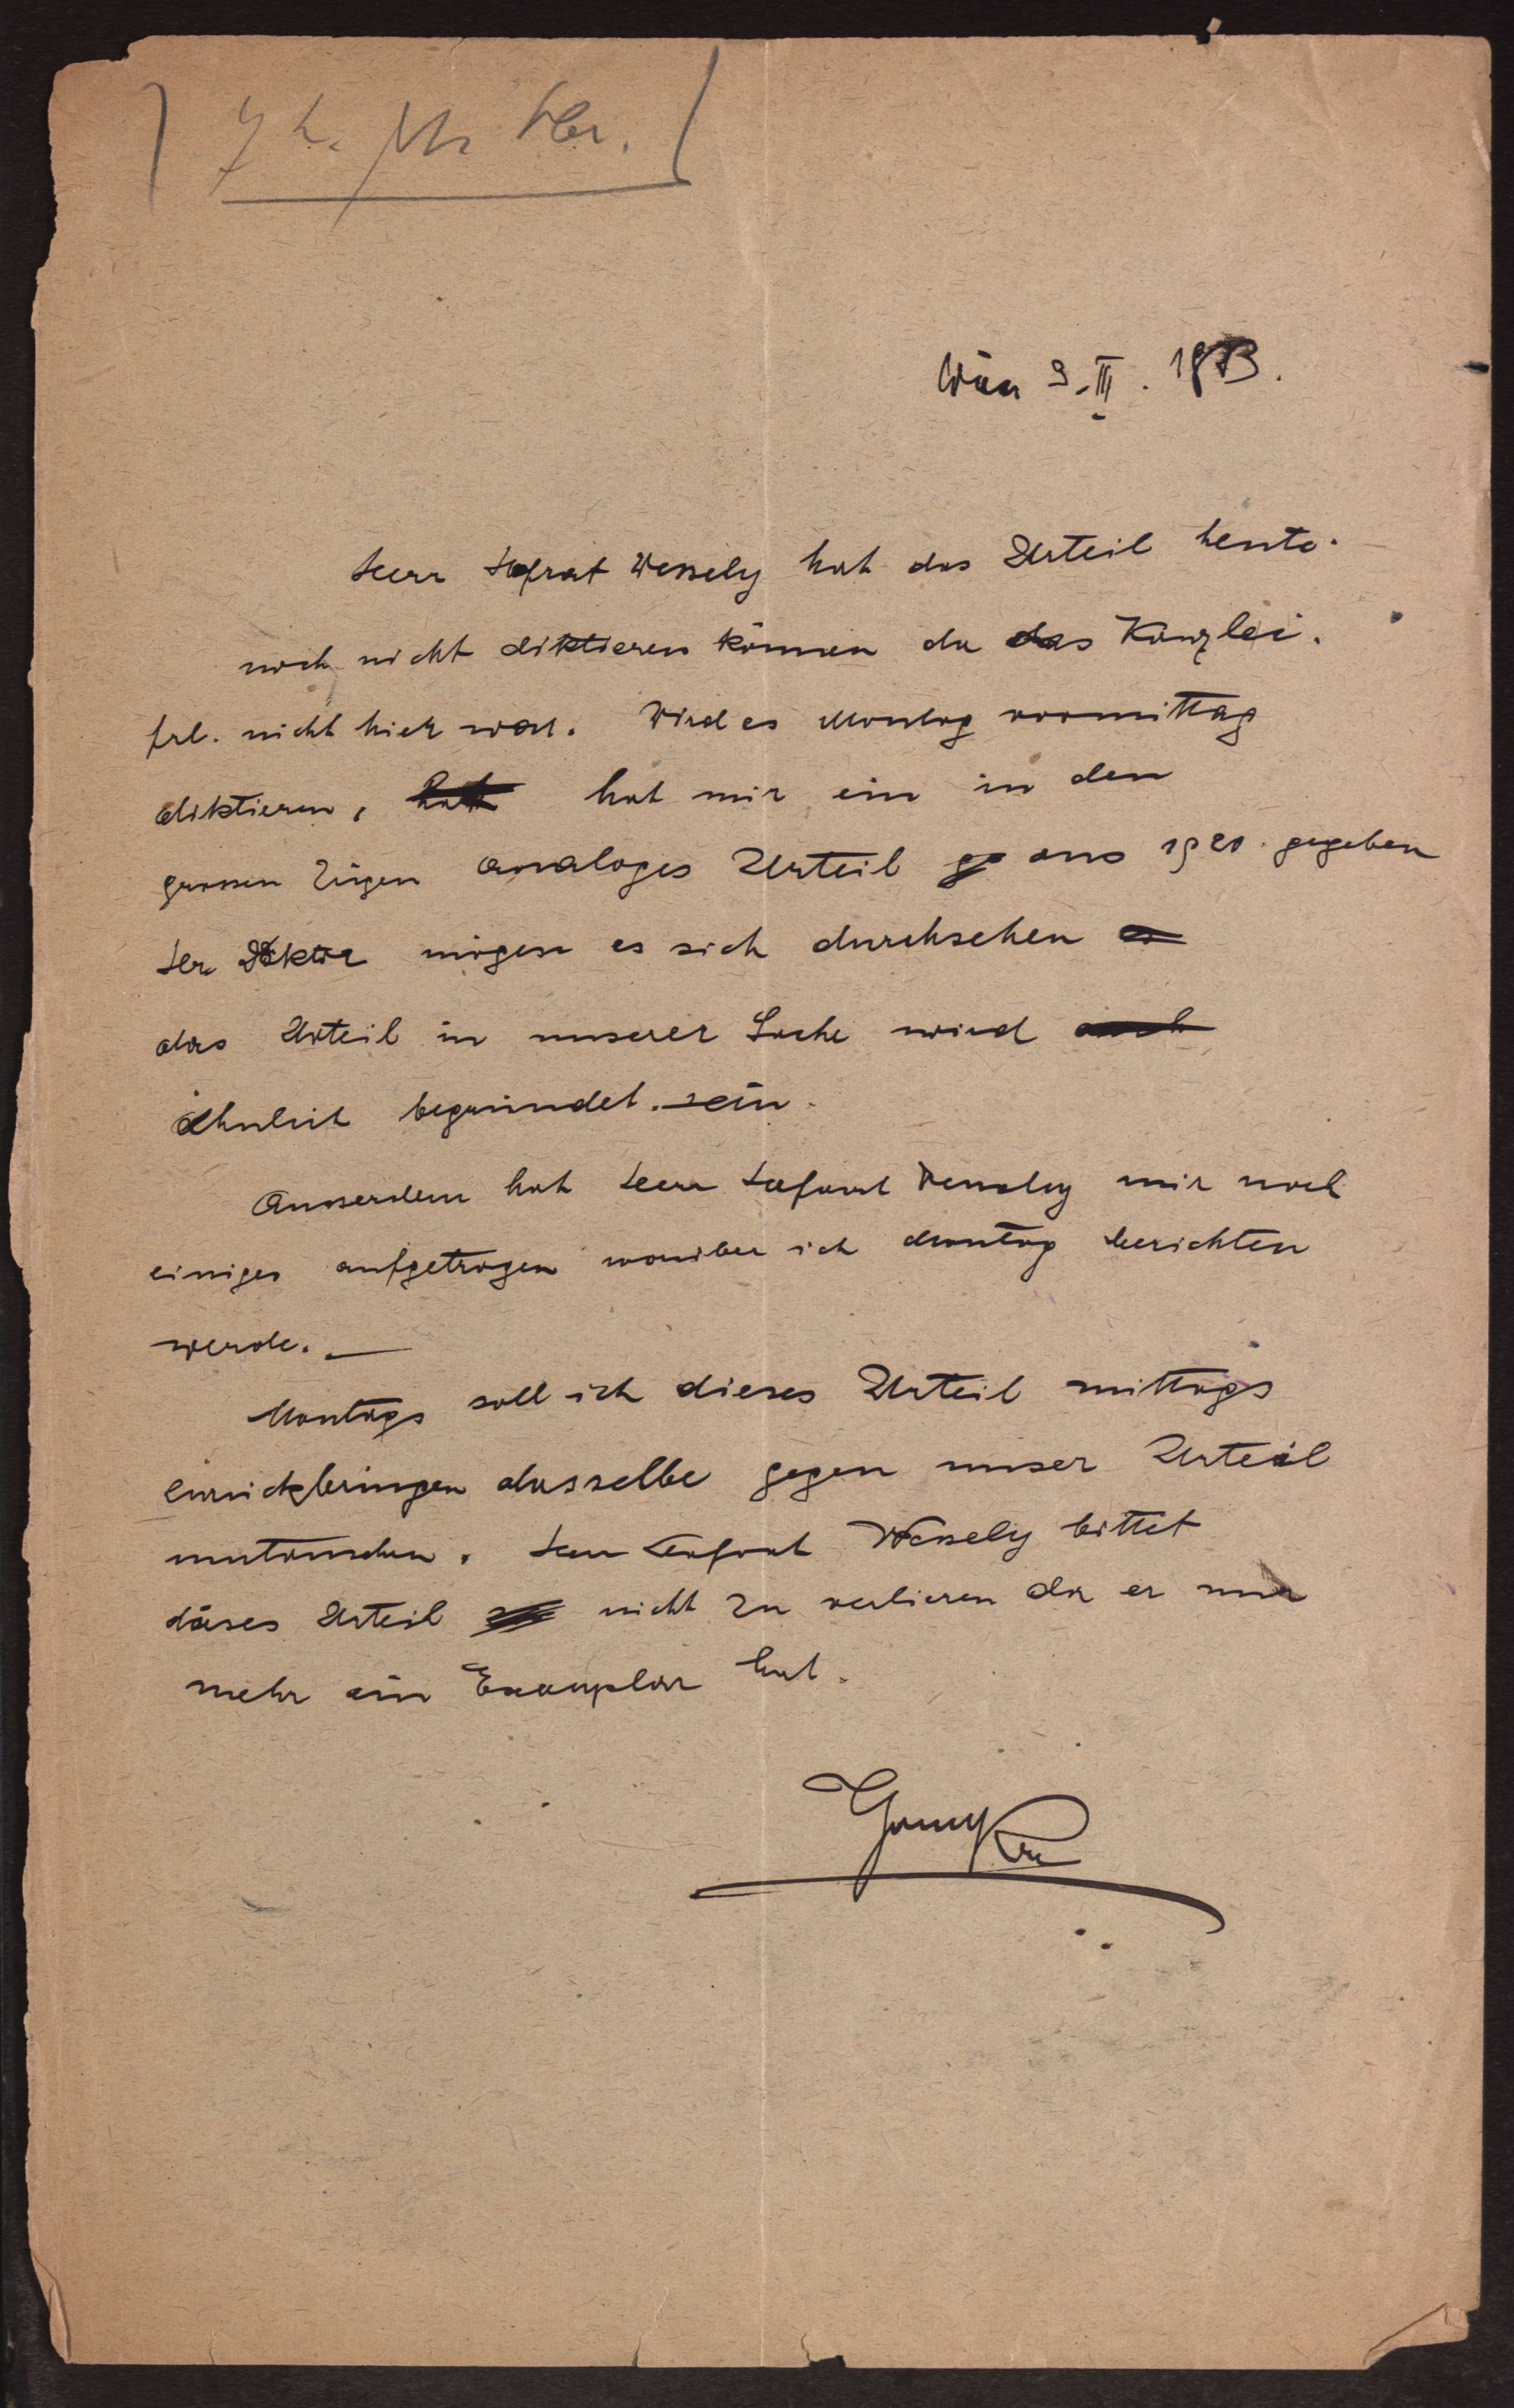 Wien 9. III. 1923.
Herr Hofrat Wessely hat das Urteil heute
noch nicht diktieren können da das Kanzlei.
frl. nicht hier war. Wird es Montag vormittag
diktieren, hat mir ein in den
grossen Zügen analoges Urteil aus 1920 gegeben
Herr Doktor mögen es sich durchsehen
das Urteil in unserer Sache wird
ähnlich begründet sein.
Ausserdem hat Herr Hofrat Wessely mir noch
einiges aufgetragen worüber ich Montag berichten
werde. —
Montags soll ich dieses Urteil mittags
zurückbringen dasselbe gegen unser Urteil
umtauschen. Herr Hofrat Wessely bittet
dieses Urteil nicht zu verlieren da er nur
mehr ein Exemplar hat.